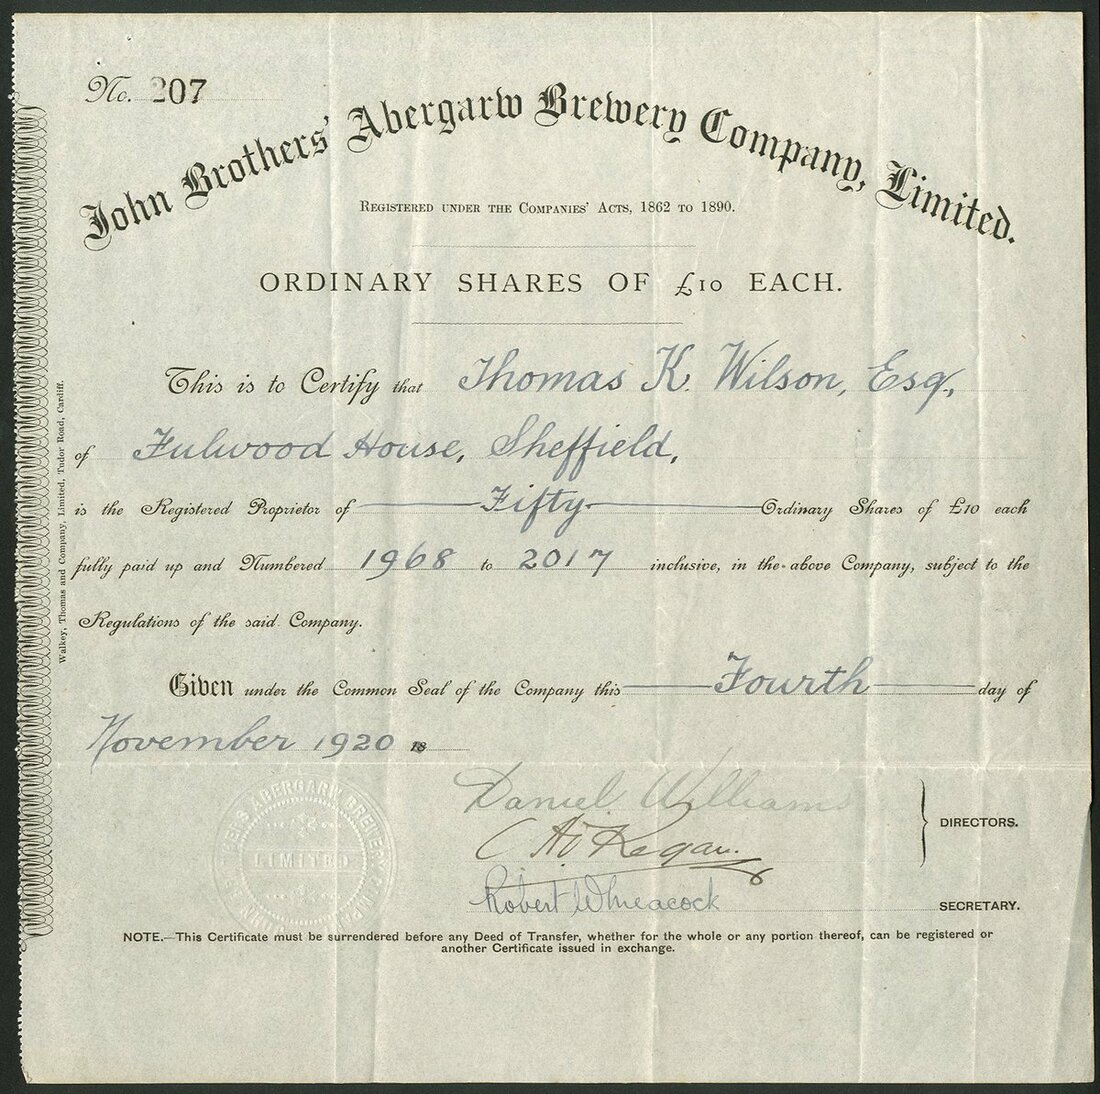 No. 207
John Brothers' Abergarw Brewery Company, Limited.
Registered under the Companies' Acts, 1862 to 1890.
ORDINARY SHARES OF £10 EACH.
This is to Certify that Thomas K. Wilson, Esq.,
of Fulwood House, Sheffield,
is the Registered Proprietor of Fifty Ordinary Shares of £10 each
fully paid up and Numbered 1968 to 2017 inclusive, in the above Company, subject to the
Regulations of the said Company.
Given under the Common Seal of the Company this Fourth day of
November 1920 18
Daniel Williams
DIRECTORS.
Robert
SECRETARY.
NOTE.—This Certificate must be surrendered before any Deed of Transfer, whether for the whole or any portion thereof, can be registered or
another Certificate issued in exchange.
Walkey, Thomas and Company, Limited, Tudor Road, Cardiff.
ABERGARW BREWERY
LIMITED